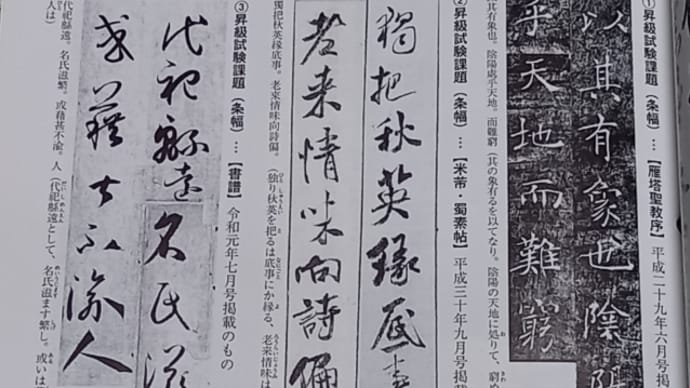 ①昇級試験課題(条幅)…【雁塔聖教序】平成二十九年六月号掲
以其有象也陰陽
乎天地而難窮
其有象也。陰陽處乎天地。而難窮(其の象有るを以てなり。陰陽の天地に処りて、窮
②昇級試験課題(条幅)…【米芾・蜀素帖】平成三十年九月号掲
獨把秋英緣底事
老来情味向詩偏
獨把秋英緣底事。老来情味向詩偏。(独り秋英を把るは底事にか縁る、老来情味は
③昇級試験課題(条幅)…【書譜】令和元年七月号掲載のもの
代祀緜遠名氏滋
或藉甚不渝人
代祀緜遠。名氏滋繁。或藉甚不渝。人(代祀緜遠として、名氏滋ます繁し。或いは
人は)